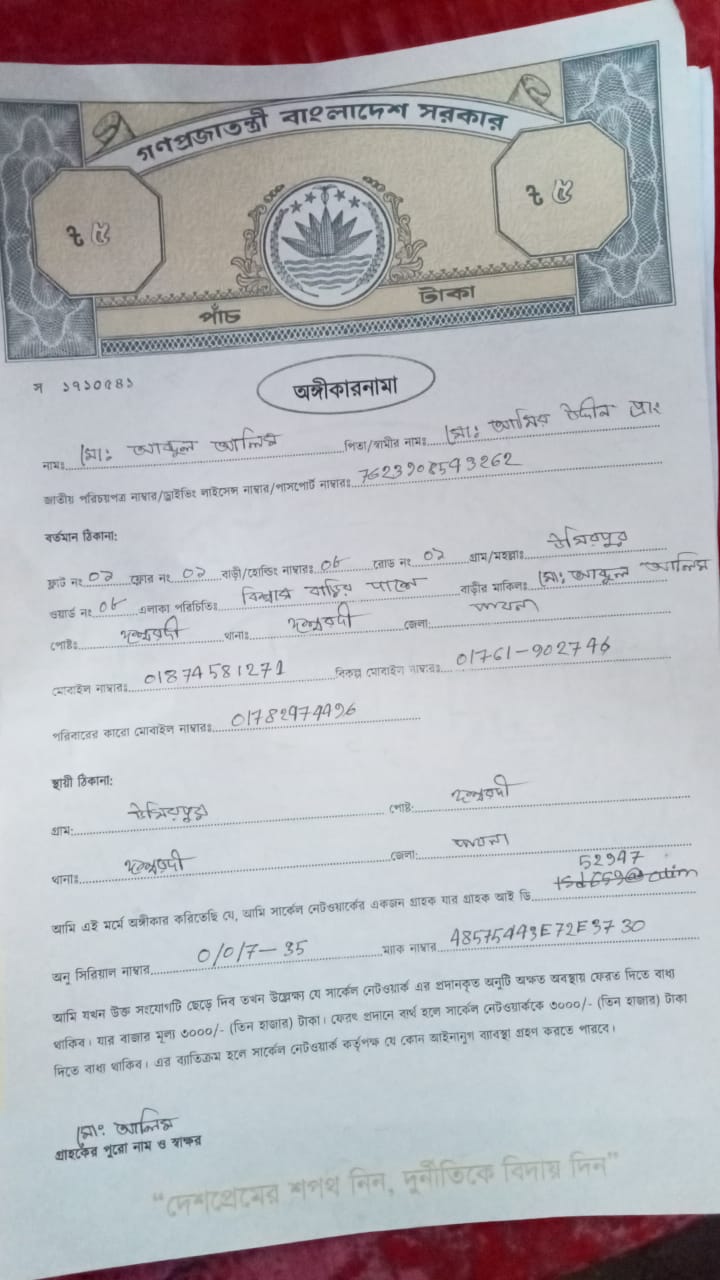 গণপ্রজাতন্ত্রী বাংলাদেশ সরকার
৳ ৫
৳ ৫
পাঁচ টাকা
স ১৭১০৫৪১
অঙ্গীকারনামা
নামঃ মোঃ আব্দুল আলিম পিতা/স্বামীর নামঃ মোঃ আমির উদ্দীন প্রাং
জাতীয় পরিচয়পত্র নাম্বার/ড্রাইভিং লাইসেন্স নাম্বার/পাসপোর্ট নাম্বারঃ
বর্তমান ঠিকানা:
ফ্লাট নং ০১ ফ্লোর নং ০১ বাড়ী/হোল্ডিং নাম্বারঃ ০৮ রোড নং ০১ গ্রাম/মহল্লাঃ উমিরপুর
ওয়ার্ড নং ০৮ এলাকা পরিচিতিঃ বিশ্বাস বাড়ির পাশে বাড়ীর মালিকঃ মোঃ আব্দুল আলিম
পোষ্টঃ ঈশ্বরদী থানাঃ ঈশ্বরদী জেলা: পাবনা
মোবাইল নাম্বারঃ 01874581271 বিকল্প মোবাইল নাম্বারঃ 01761-902746
পরিবারের কারো মোবাইল নাম্বারঃ
স্থায়ী ঠিকানা:
গ্রাম: উমিরপুর পোষ্ট: ঈশ্বরদী
থানাঃ ঈশ্বরদী জেলা: পাবনা
52947
আমি এই মর্মে অঙ্গীকার করিতেছি যে, আমি সার্কেল নেটওয়ার্কের একজন গ্রাহক যার গ্রাহক আই ডি
অনু সিরিয়াল নাম্বার 0/0/7-35 ম্যাক নাম্বার
আমি যখন উক্ত সংযোগটি ছেড়ে দিব তখন উল্লেক্ষ্য যে সার্কেল নেটওয়ার্ক এর প্রদানকৃত অনুটি অক্ষত অবস্থায় ফেরত দিতে বাধ্য
থাকিব। যার বাজার মূল্য ৩০০০/- (তিন হাজার) টাকা। ফেরৎ প্রদানে ব্যর্থ হলে সার্কেল নেটওয়ার্ককে ৩০০০/- (তিন হাজার) টাকা
দিতে বাধ্য থাকিব। এর ব্যতিক্রম হলে সার্কেল নেটওয়ার্ক কর্তৃপক্ষ যে কোন আইনানুগ ব্যবস্থা গ্রহণ করতে পারবে।
মোঃ আলিম
গ্রাহকের পুরো নাম ও স্বাক্ষর
“দেশপ্রেমের শপথ নিন, দুর্নীতিকে বিদায় দিন”